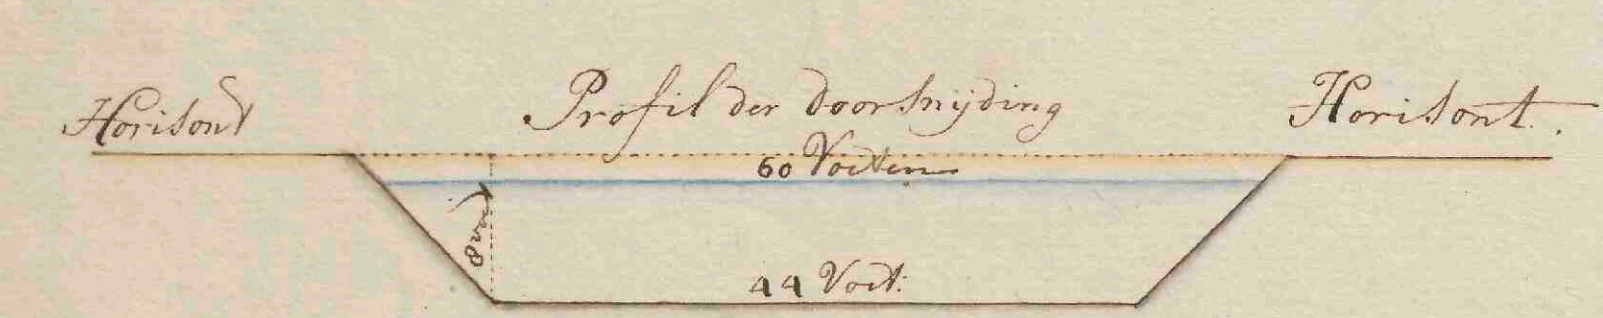 Horisont
Profil der doorsnijding
Horisont.
60 Voeten
8 vt
44 Voet: